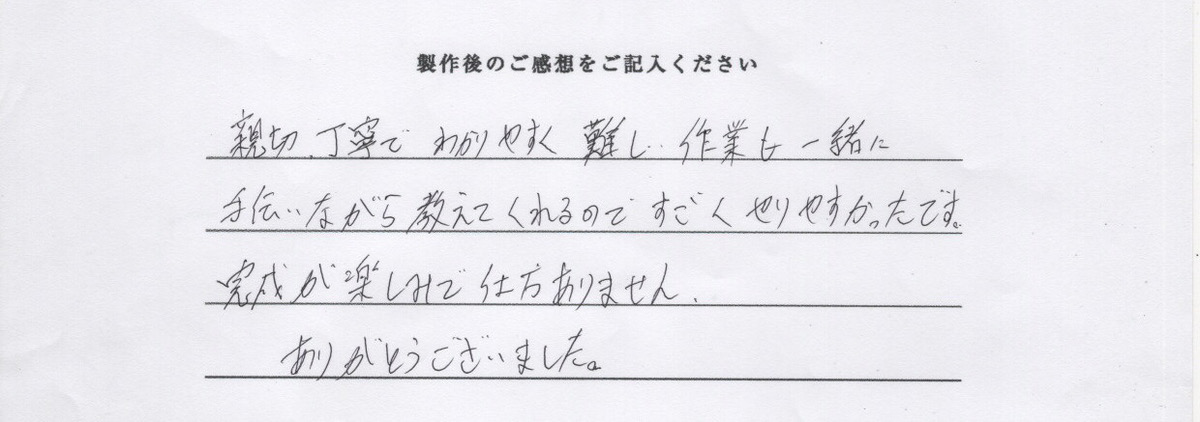 製作後のご感想をご記入ください
親切、丁寧で わかりやすく 難しい 作業も 一緒に
手伝いながら教えてくれるので すごく やりやすかったです。
完成が楽しみで 仕方ありません。
ありがとうございました。